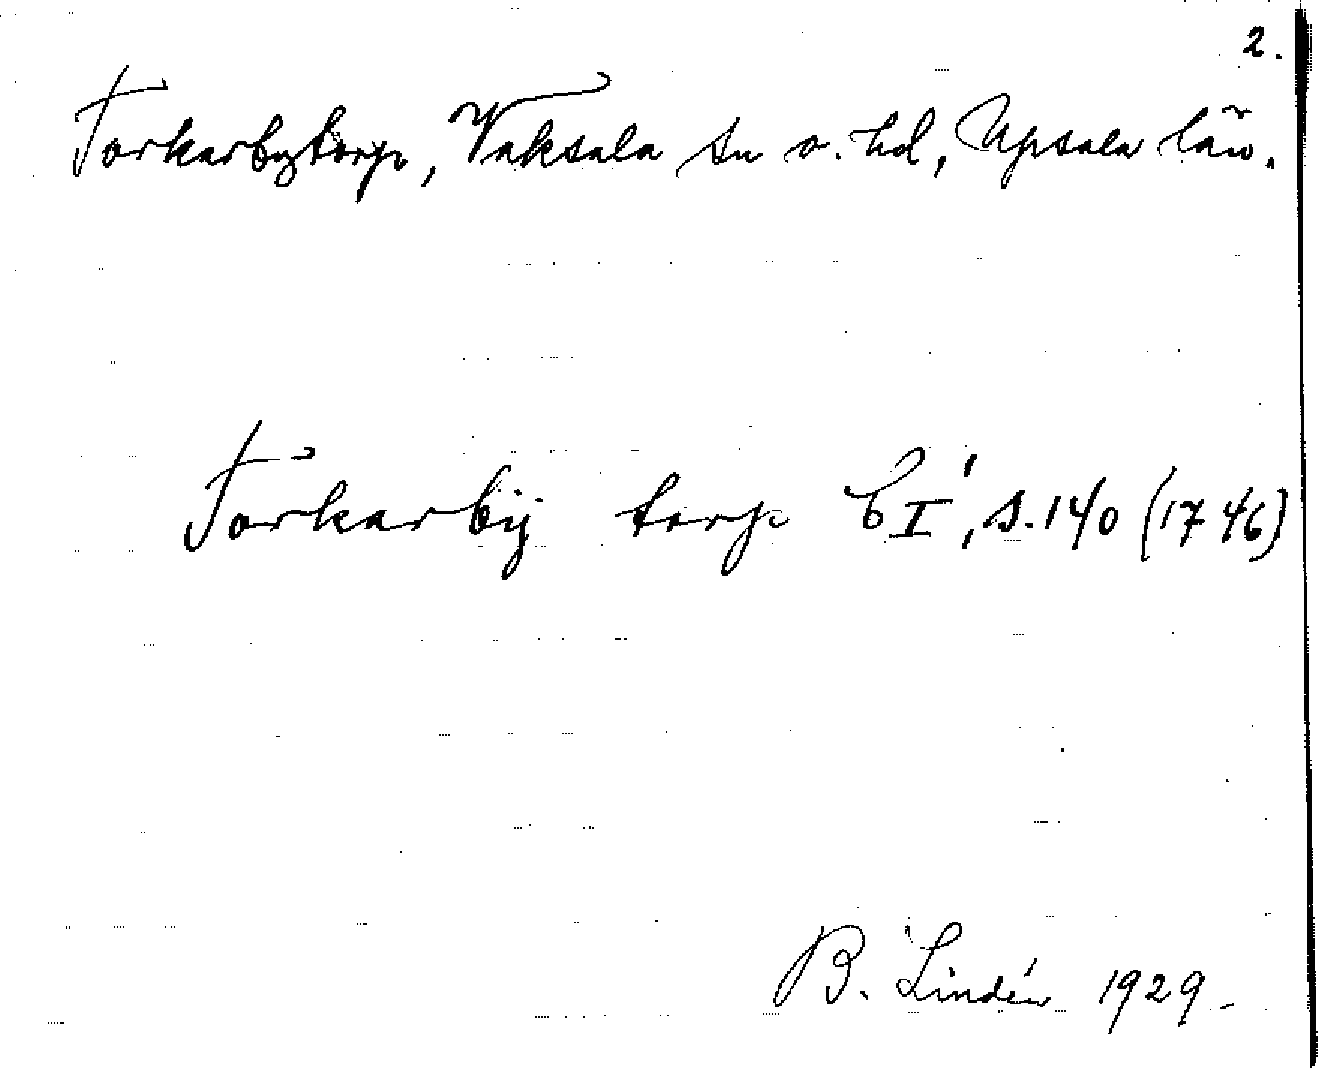 2.
Torkarbytorp, Vaksala sn o. hd, Upsala län.
Torkarbÿ torp C I¹, s. 140 (1746)
B. Lindén 1929